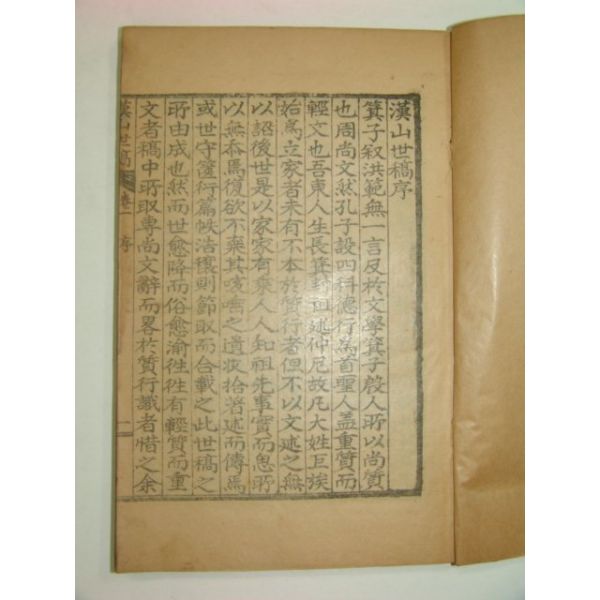 漢山世稿序
箕子叙洪範無一言及於文學箕子殷人所以尚質
也周尚文然孔子設四科德行爲首聖人盖重質而
輕文也吾東人生長箕封祖述仲尼故凡大姓巨族
始爲立家者未有不本於質行者但不以文述之無
以詔後世是以家家有乘人人知祖先事實而思所
以無忝焉復欲不棄其咳唾之遺收拾著述而傳焉
或世守篤行篇帙浩穰則節取而合載之此世稿之
所由成也然而世愈降而俗愈渝徃徃有輕質而重
文者稿中所取專尚文辭而畧於質行識者惜之余
漢山世稿 卷一 序 一